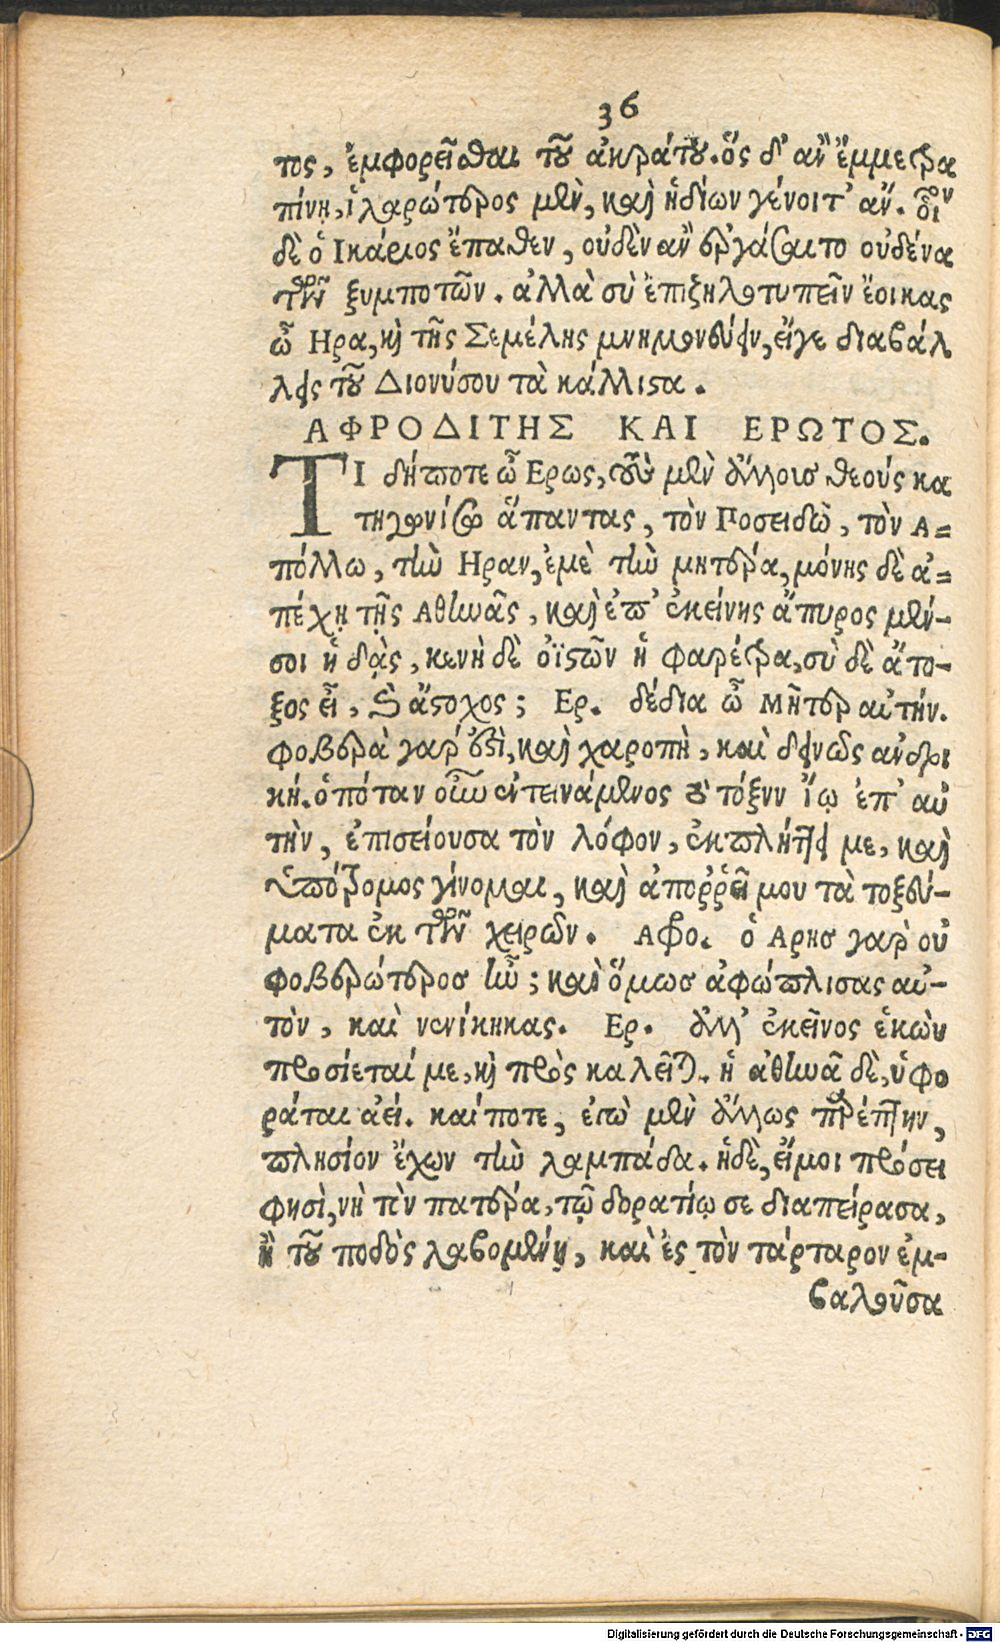 36
τος, ἐμφορεῖσθαι τοῦ ἀκράτου. ὅς δ' ἂν ἔμμετρα
πίνῃ, ἱλαρώτερος μὲν, καὶ ἡδίων γένοιτ' ἄν. οἷον
δὲ ὁ Ικάριος ἔπαθεν, οὐδὲν ἂν ἐργάσαιτο οὐδένα
τῶν ξυμποτῶν. ἀλλὰ σὺ ἔπιζηλοτυπεῖν ἔοικας
ὦ Ηρα, καὶ τῆς Σεμέλης μνημονεύειν, εἴγε διαβάλ
λεις τοῦ Διονύσου τὰ κάλλιστα.
ΑΦΡΟΔΙΤΗΣ ΚΑΙ ΕΡΩΤΟΣ.
ΤΙ δήποτε ὦ Ερως, τοὺς μὲν ἄλλοισ θεούς κα
τηγωνίσω ἅπαντας, τὸν Ποσειδῶ, τὸν Α=
πόλλω, τὴν Ηραν, ἐμὲ τὴν μητέρα, μόνης δὲ ἀ=
πέχῃ τῆς Αθηνᾶς, καὶ ἐπ' ἐκείνης ἄπυρος μέν-
σοι ἡ δᾴς, κενὴ δὲ οἰϊστῶν ἡ φαρέτρα, σὺ δὲ ἄτο-
ξος εἶ, καὶ ἄστοχος; Ερ. δέδια ὦ Μῆτερ αὐτήν.
φοβερὰ γάρ ἐστὶ, καὶ χαροπὴ, καὶ δεινῶς ἀνδρι
κή. ὁπόταν οὖν ἐντεινάμενος τὸ τόξνν ἴω ἐπ' αὐ
τὴν, ἐπισείουσα τὸν λόφον, ἐκπλήττει με, καὶ
ὑπότρομος γίνομαι, καὶ ἀποῤῥεῖ μου τὰ τοξεύ-
ματα ἐκ τῶν χειρῶν. Αφρο. ὁ Αρησ γαρ̀ οὐ
φοβερώτεροσ ἦν; καὶ ὅμωσ ἀφώπλισας αὐ-
τὸν, καὶ νενίκηκας. Ερ. ἀλλ' ἐκεῖνος ἑκὼν
προσίεταί με, καὶ προς καλεῖται. ἡ ἀθηνᾶ δὲ, ὑφο
ρᾶται ἀεί. καίποτε, ἐγὼ μὲν ἄλλως παρέπτην,
πλησίον ἔχων τὴν λαμπάδα. ἡδὲ, εἴμοι πρόσει
φησὶ, νὴ τὸν πατέρα, τῷ δορατίῳ σε διαπείρασα,
ἢ τοῦ ποδὸς λαβομένη, καὶ ἐς τὸν τάρταρον ἐμ-
βαλοῦσα
Digitalisierung gefördert durch die Deutsche Forschungsgemeinschaft - DFG